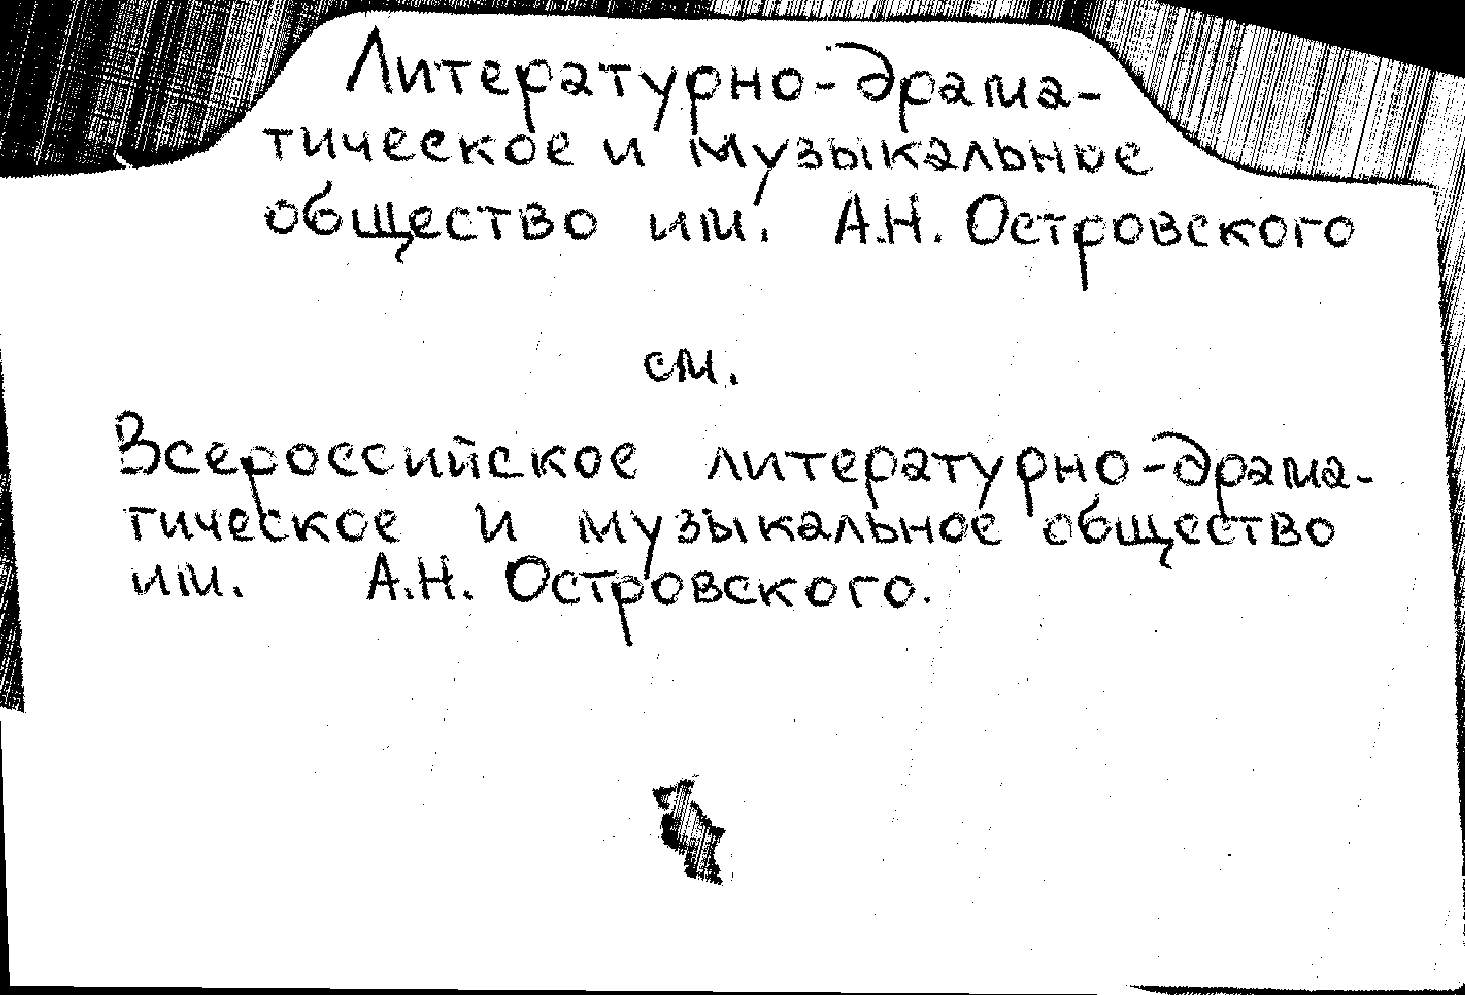 Литературно-драма-
тическое и музыкальное
общество им. А.Н. Островского
см.
Всероссийское литературно-драма-
тическое и музыкальное общество
им. А.Н. Островского.